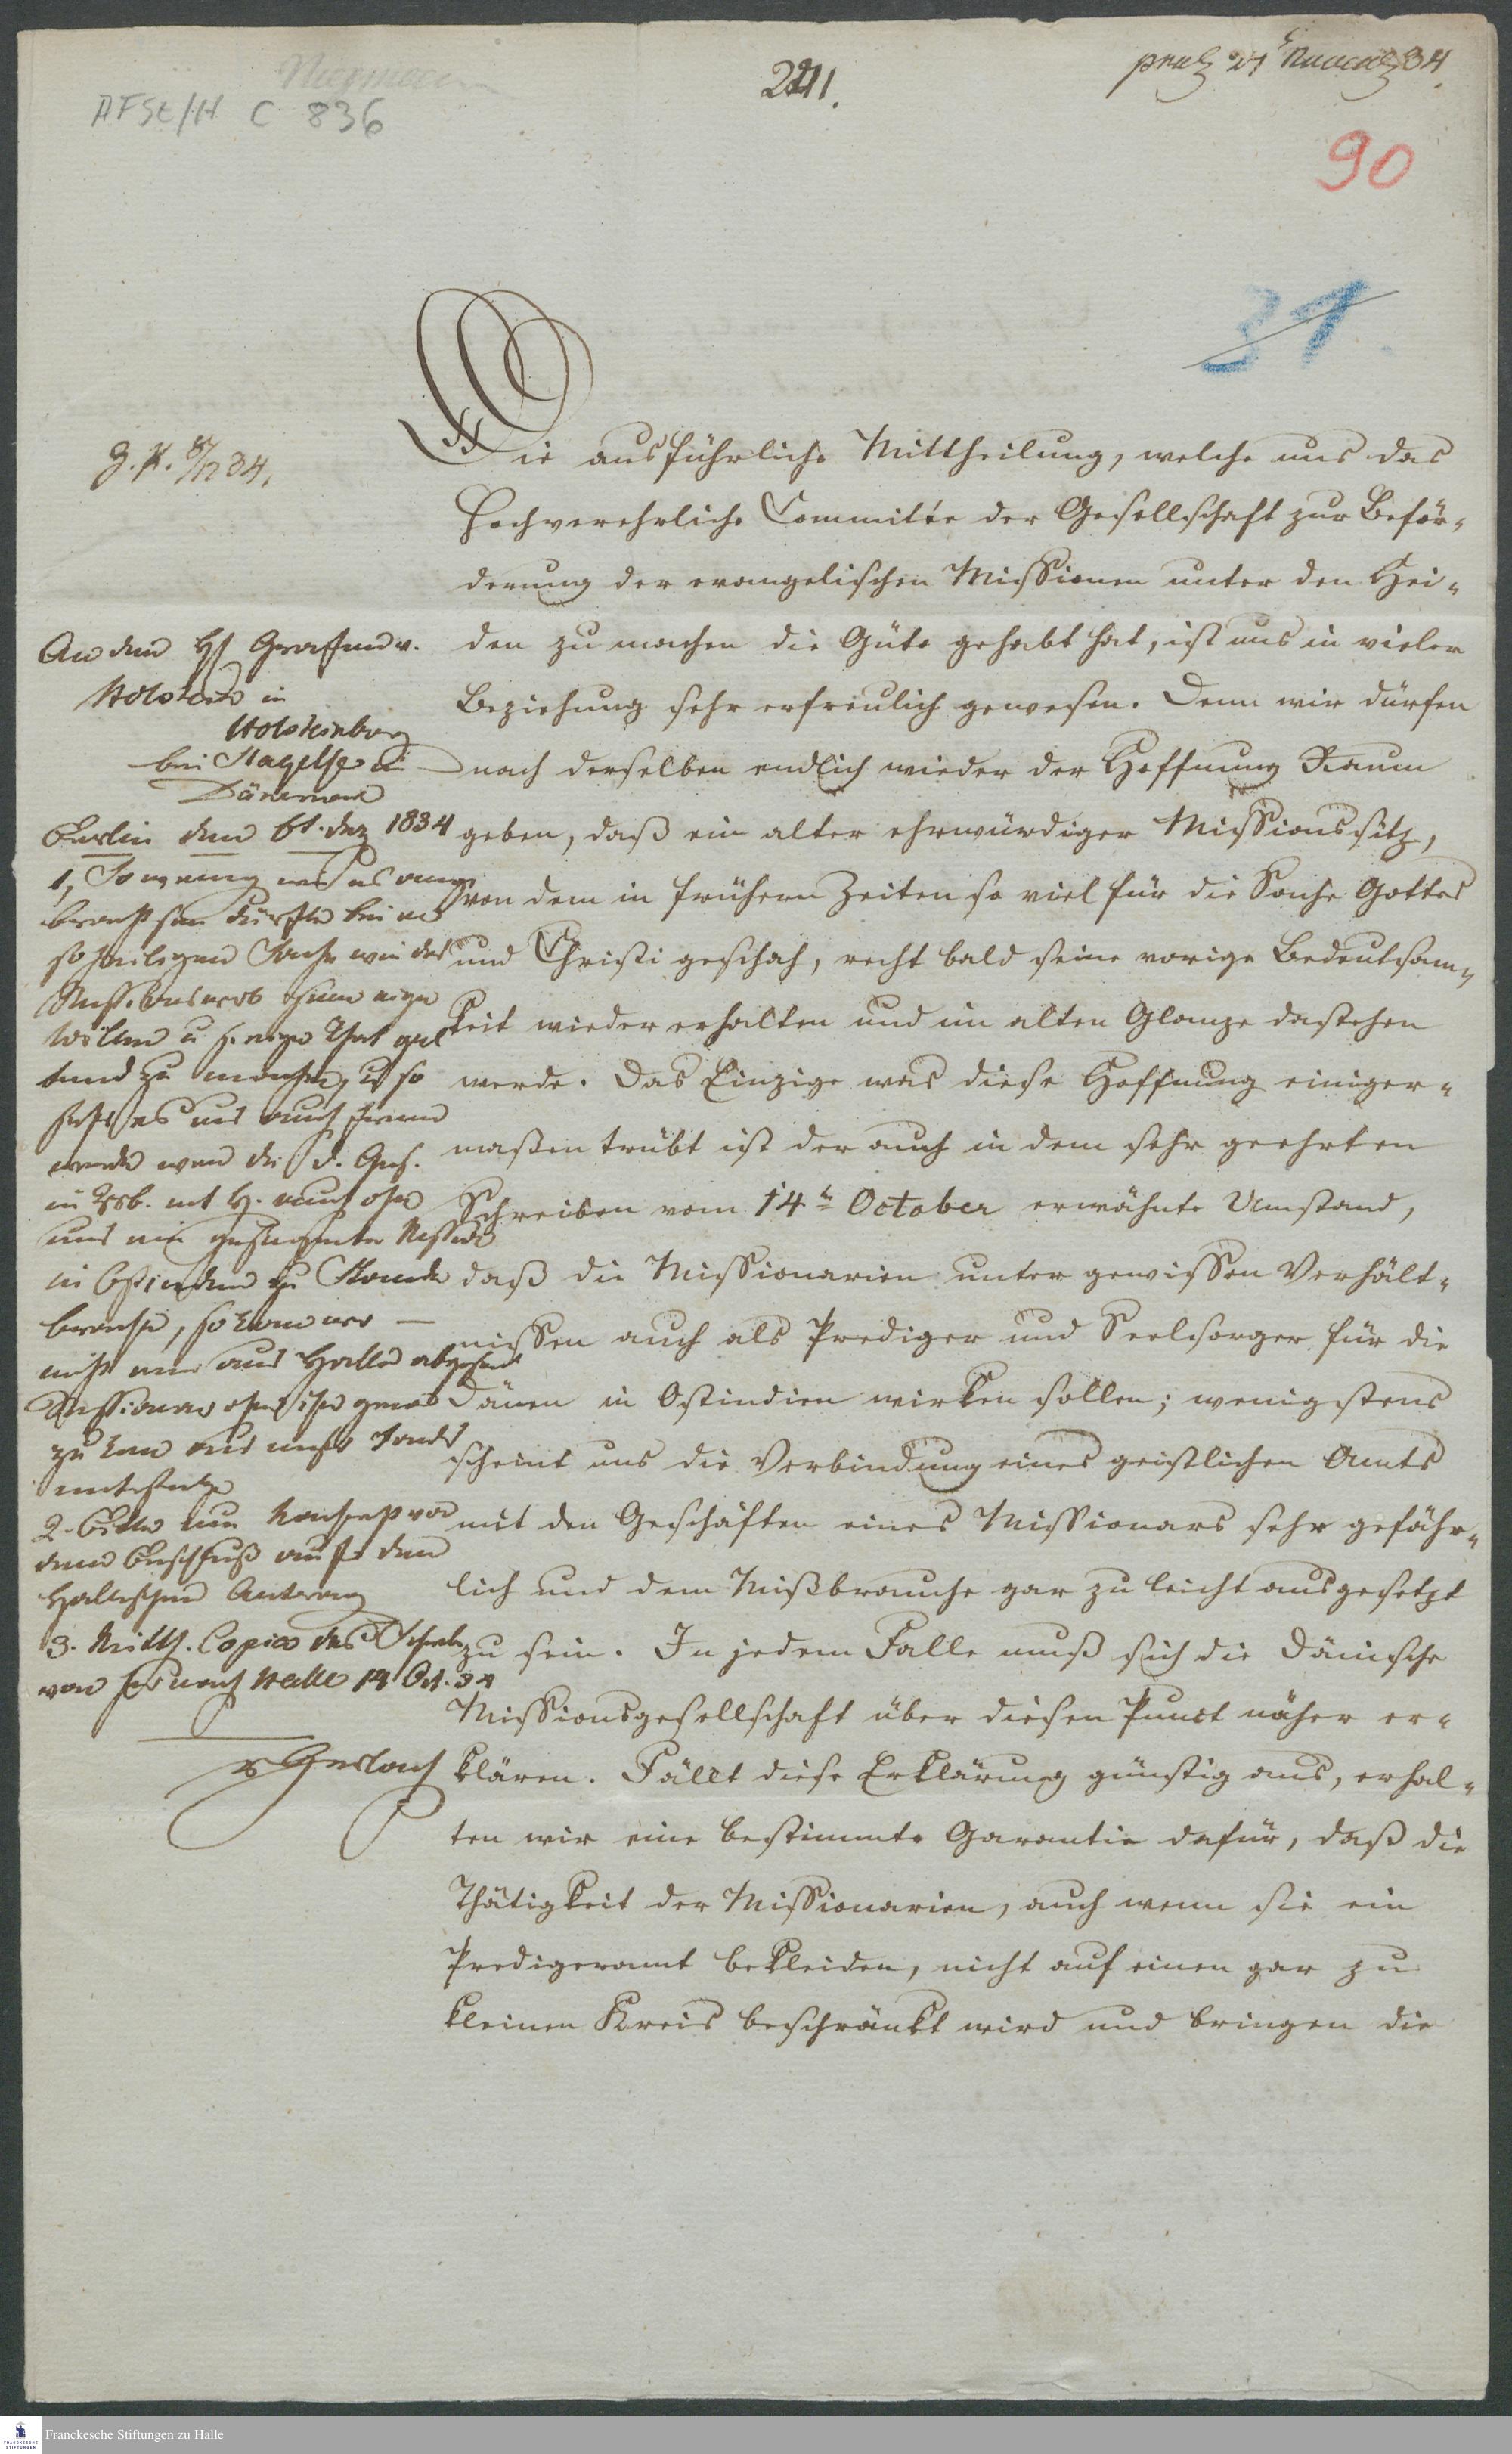 Niemeyer
AFSt/H C 836
241.
90
31.
Die ausführliche Mittheilung, welche uns das
Hochverehrliche Committée der Gesellschaft zur Beför-
derung der evangelischen Missionen unter den Hei-
den zu machen die Güte gehabt hat, ist uns in vieler
Beziehung sehr erfreulich gewesen. Denn wir dürfen
nach derselben endlich wieder der Hoffnung Raum
geben, daß ein alter ehrwürdiger Missionssitz,
von dem in frühern Zeiten so viel für die Sache Gottes
und Christi geschah, recht bald seine vorige Bedeutsam-
keit wieder erhalten und im alten Glanze dastehen
werde. Das Einzige was diese Hoffnung einiger-
maßen trübt ist der auch in dem sehr geehrten
Schreiben vom 14t October erwähnte Umstand,
daß die Missionarien unter gewissen Verhält-
nissen auch als Prediger und Seelsorger für die
Dänen in Ostindien wirken sollen; wenigstens
scheint uns die Verbindung eines geistlichen Amts
mit den Geschäften eines Missionars sehr gefähr-
lich und dem Mißbrauche gar zu leicht ausgesetzt
zu sein. In jedem Falle muß sich die Dänische
Missionsgesellschaft über diesen Punct näher er-
klären. Fällt diese Erklärung günstig aus, erhal-
ten wir eine bestimmte Garantie dafür, daß die
Thätigkeit der Missionarien, auch wenn sie ein
Predigeramt bekleiden, nicht auf einen gar zu
kleinen Kreis beschränkt wird und bringen die
An den H Grafen v.
Holstein in
Holsteinborg
bei Slagelse in
Dänemark
Berlin den 6t. Dez 1834
so heiligen Sache wie das
in Ostindien zu Stande
nicht nur aus Halle
zu
dem Beschluß auf den
Hallischen Antrag
3. Mitth. Copia des Schreib.
von hier nach Halle 14 Oct. 34
v Gerlach
Franckesche Stiftungen zu Halle